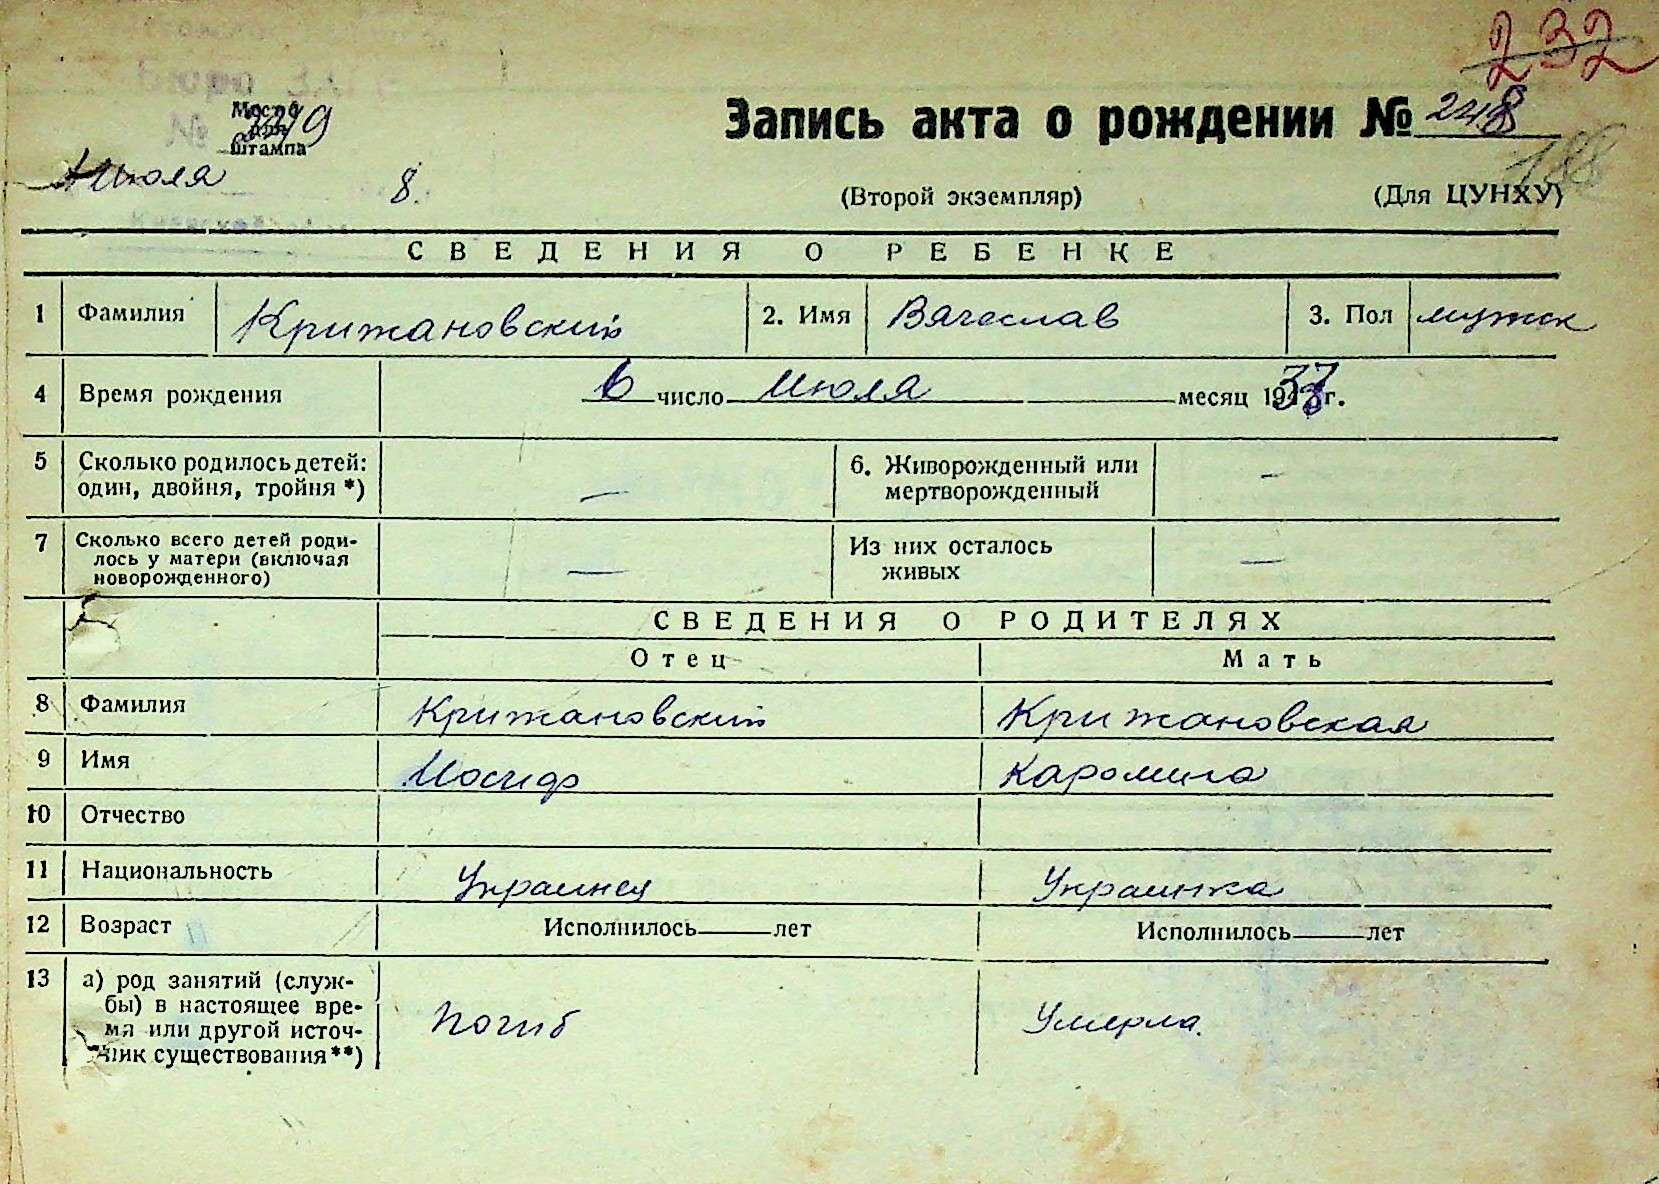 232
Бюро ЗАГС
№
Место
для
штампа
Запись акта о рождении № 248
188
Июля 8.
(Второй экземпляр) (Для ЦУНХУ)
СВЕДЕНИЯ О РЕБЕНКЕ
1 Фамилия Крижановский 2. Имя Вячеслав 3. Пол мужск
4 Время рождения 6 число Июля месяц 19 г.
5 Сколько родилось детей: один, двойня, тройня *) — 6. Живорожденный или мертворожденный —
7 Сколько всего детей роди-
лось у матери (включая
новорожденного) — Из них осталось живых —
СВЕДЕНИЯ О РОДИТЕЛЯХ
Отец Мать
8 Фамилия Крижановский Крижановская
9 Имя Иосиф Каролина
10 Отчество
11 Национальность Украинец Украинка
12 Возраст Исполнилось лет Исполнилось лет
13 а) род занятий (служ-
бы) в настоящее вре-
мя или другой источ-
ник существования**) Погиб Умерла.